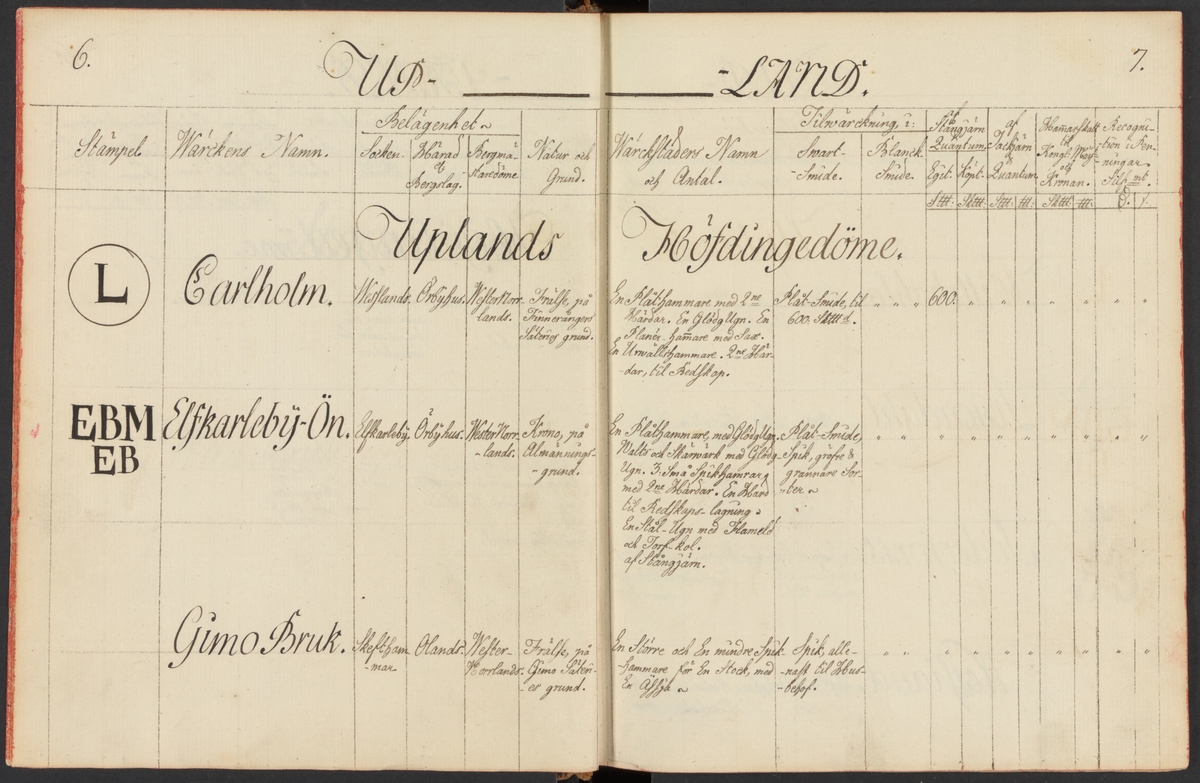 6.
7.
UP-
-LAND.
Stämpel.
Wärckens Namn.
Belägenhet
Socken.
Härad
och
Bergslag.
Bergmä-
staredöme
Natur och
Grund.
Wärckstäders Namn
och Antal.
Tilwärckning, i:
Swart-
-Smide.
Blanck
Smide.
af
Stångjärn
Quantum.
Eget.
Köpt.
af
Tackjärn
Quantum.
Hammarskatt
til
Kongl: Maj:
och
Kronan.
Recogni-
tion i Pen-
ningar.
Silf. mt.
Uplands
Höfdingedöme.
L
Carlholm.
Westlands.
Örbyhus.
Wester Norr-
lands.
Frälse, på
Finnerångers
Säteries grund.
En Plåthammare med 2ne
Härdar. En Glödg Ugn. En
Planér-hammare med Sax.
En Urwälshammare. 2ne Här-
-dar, til Redskap.
Plåt-Smide, til
600. Skttt d.
600.
EBM
EB
Elfkarleby-Ön.
Elfkarleby.
Örbyhus.
Wester Norr-
-lands.
Krono, på
Almännings-
-grund.
En Plåthammare, med Glödg Ugn.
Walts och Skärwärk med Glödg-
Ugn. 3: Små Spikhamrar,
med 2ne Härdar. En Härd
til Redskaps-lagning.
En Stål-Ugn med Flameld
och Torf-kol.
af Stångjärn.
Plåt-Smide,
Spik, gröfre &
grannare Sor-
-ter
Gimo Bruk.
Skeftham-
mar
Olands.
Wester-
Norrlands.
Frälse, på
Gimo Säteri-
-es grund.
En Större och En mindre Spik-
-hammare för En Stock, med
En Ässja
Spik, alle-
-nast til Hus-
-behof.